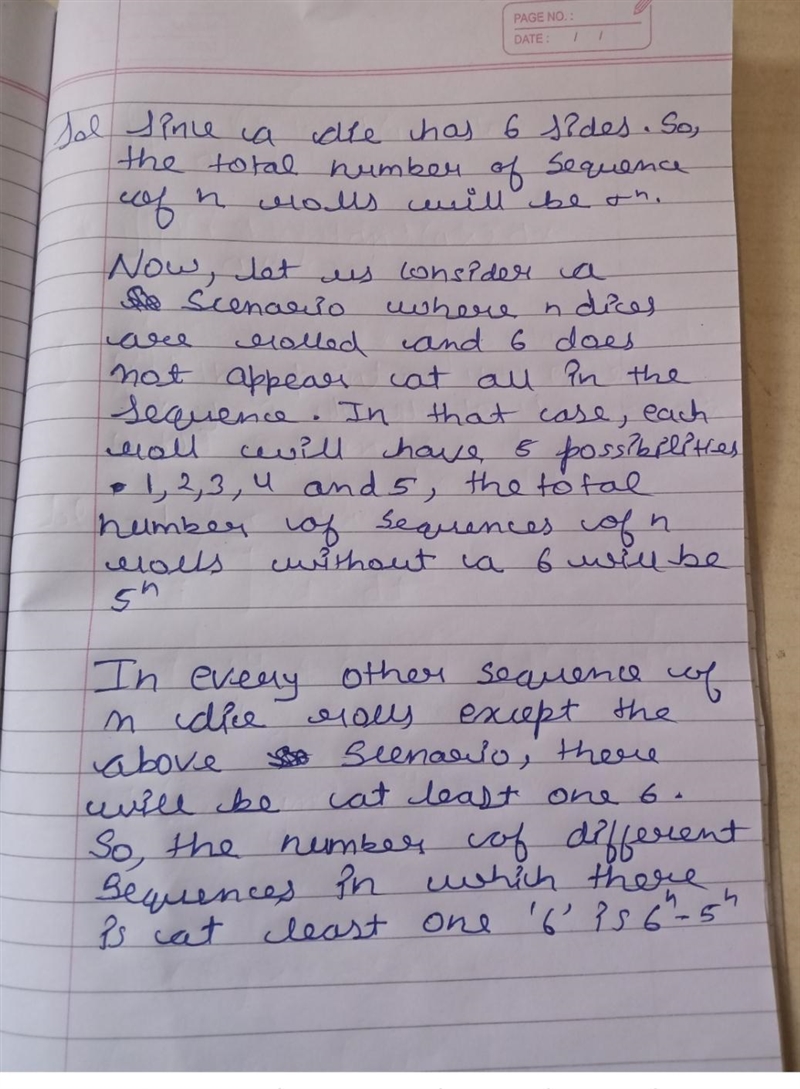 PAGE NO.:
DATE: / /
Sol Since a die has 6 sides. So,
the total number of sequence
of n rolls will be 6ⁿ.
Now, let us consider a
scenario where n dices
are rolled and 6 does
not appear at all in the
sequence. In that case, each
roll will have 5 possibilities
1, 2, 3, 4 and 5, the total
number of sequences of n
rolls without a 6 will be
5ⁿ
In every other sequence of
n die rolls except the
above scenario, there
will be at least one 6.
So, the number of different
sequences in which there
is at least one '6' is 6ⁿ - 5ⁿ